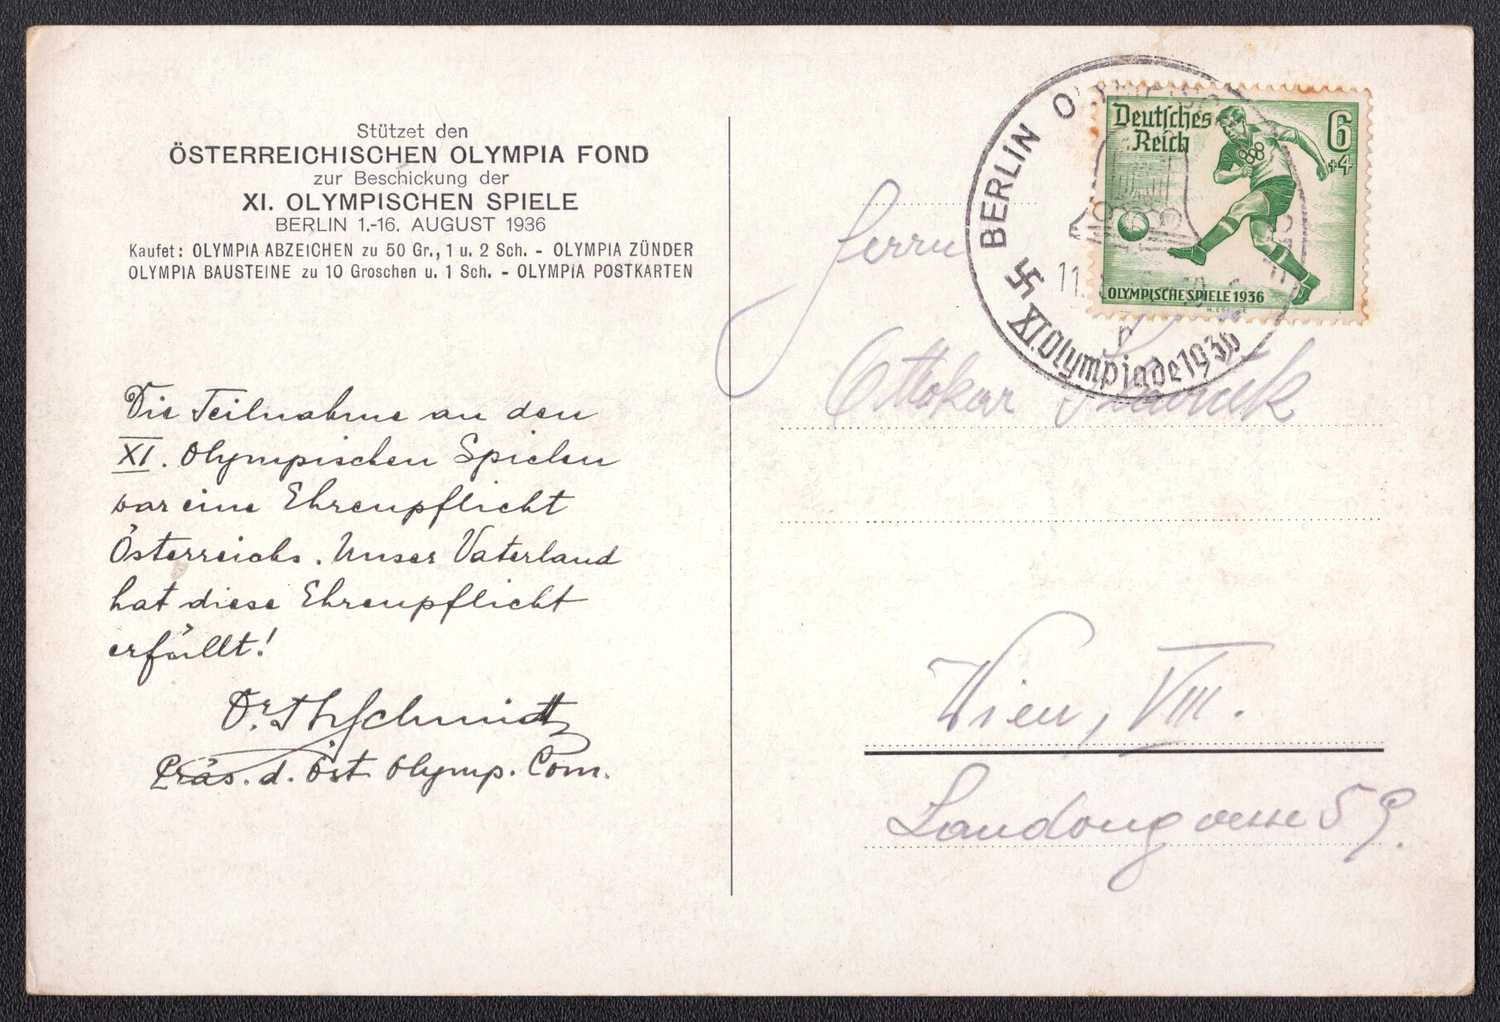 Stützet den
ÖSTERREICHISCHEN OLYMPIA FOND
zur Beschickung der
XI. OLYMPISCHEN SPIELE
BERLIN 1.-16. AUGUST 1936
Kaufet: OLYMPIA ABZEICHEN zu 50 Gr., 1 u. 2 Sch. - OLYMPIA ZÜNDER
OLYMPIA BAUSTEINE zu 10 Groschen u. 1 Sch. - OLYMPIA POSTKARTEN
Die Teilnahme an den
XI. Olympischen Spielen
war eine Ehrenpflicht
Österreichs. Unser Vaterland
hat diese Ehrenpflicht
erfüllt!
Dr. Th Schmidt
Präs. d. Öst. Olymp. Com.
BERLIN
11.
XI. Olympiade 1936
Deutsches
Reich
6
+4
OLYMPISCHE SPIELE 1936
Herrn
Ottokar
Wien, VIII.
Laudongasse 59.